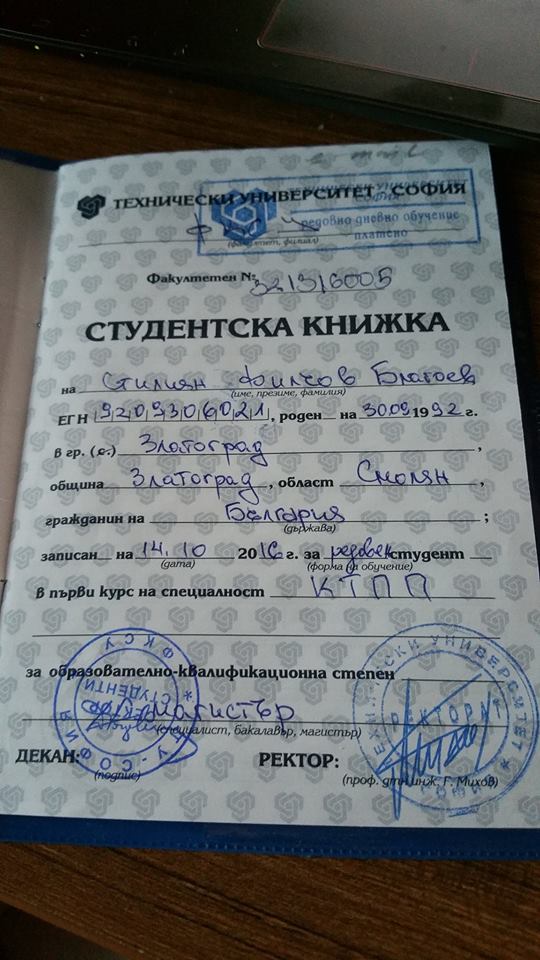 ТЕХНИЧЕСКИ УНИВЕРСИТЕТ - СОФИЯ
редовно дневно обучение
платено
(факултет, филиал)
Факултетен № 321316005
СТУДЕНТСКА КНИЖКА
на Стилиян Филчов Благоев
(име, презиме, фамилия)
ЕГН 9209306021, роден на 30.09 1992 г.
в гр. (с.) Златоград,
община Златоград, област Смолян,
гражданин на България;
(държава)
записан на 14.10 2016 г. за редовен студент
(дата) (форма на обучение)
В първи курс на специалност КТПП
за образователно-квалификационна степен
магистър
(специалист, бакалавър, магистър)
ДЕКАН: РЕКТОР:
(подпис) (проф. дтн инж. Г. Михов)
ФКСУ
СТУДЕНТИ
ТУ-СОФИЯ
ТЕХНИЧЕСКИ УНИВЕРСИТЕТ
РЕКТОРАТ